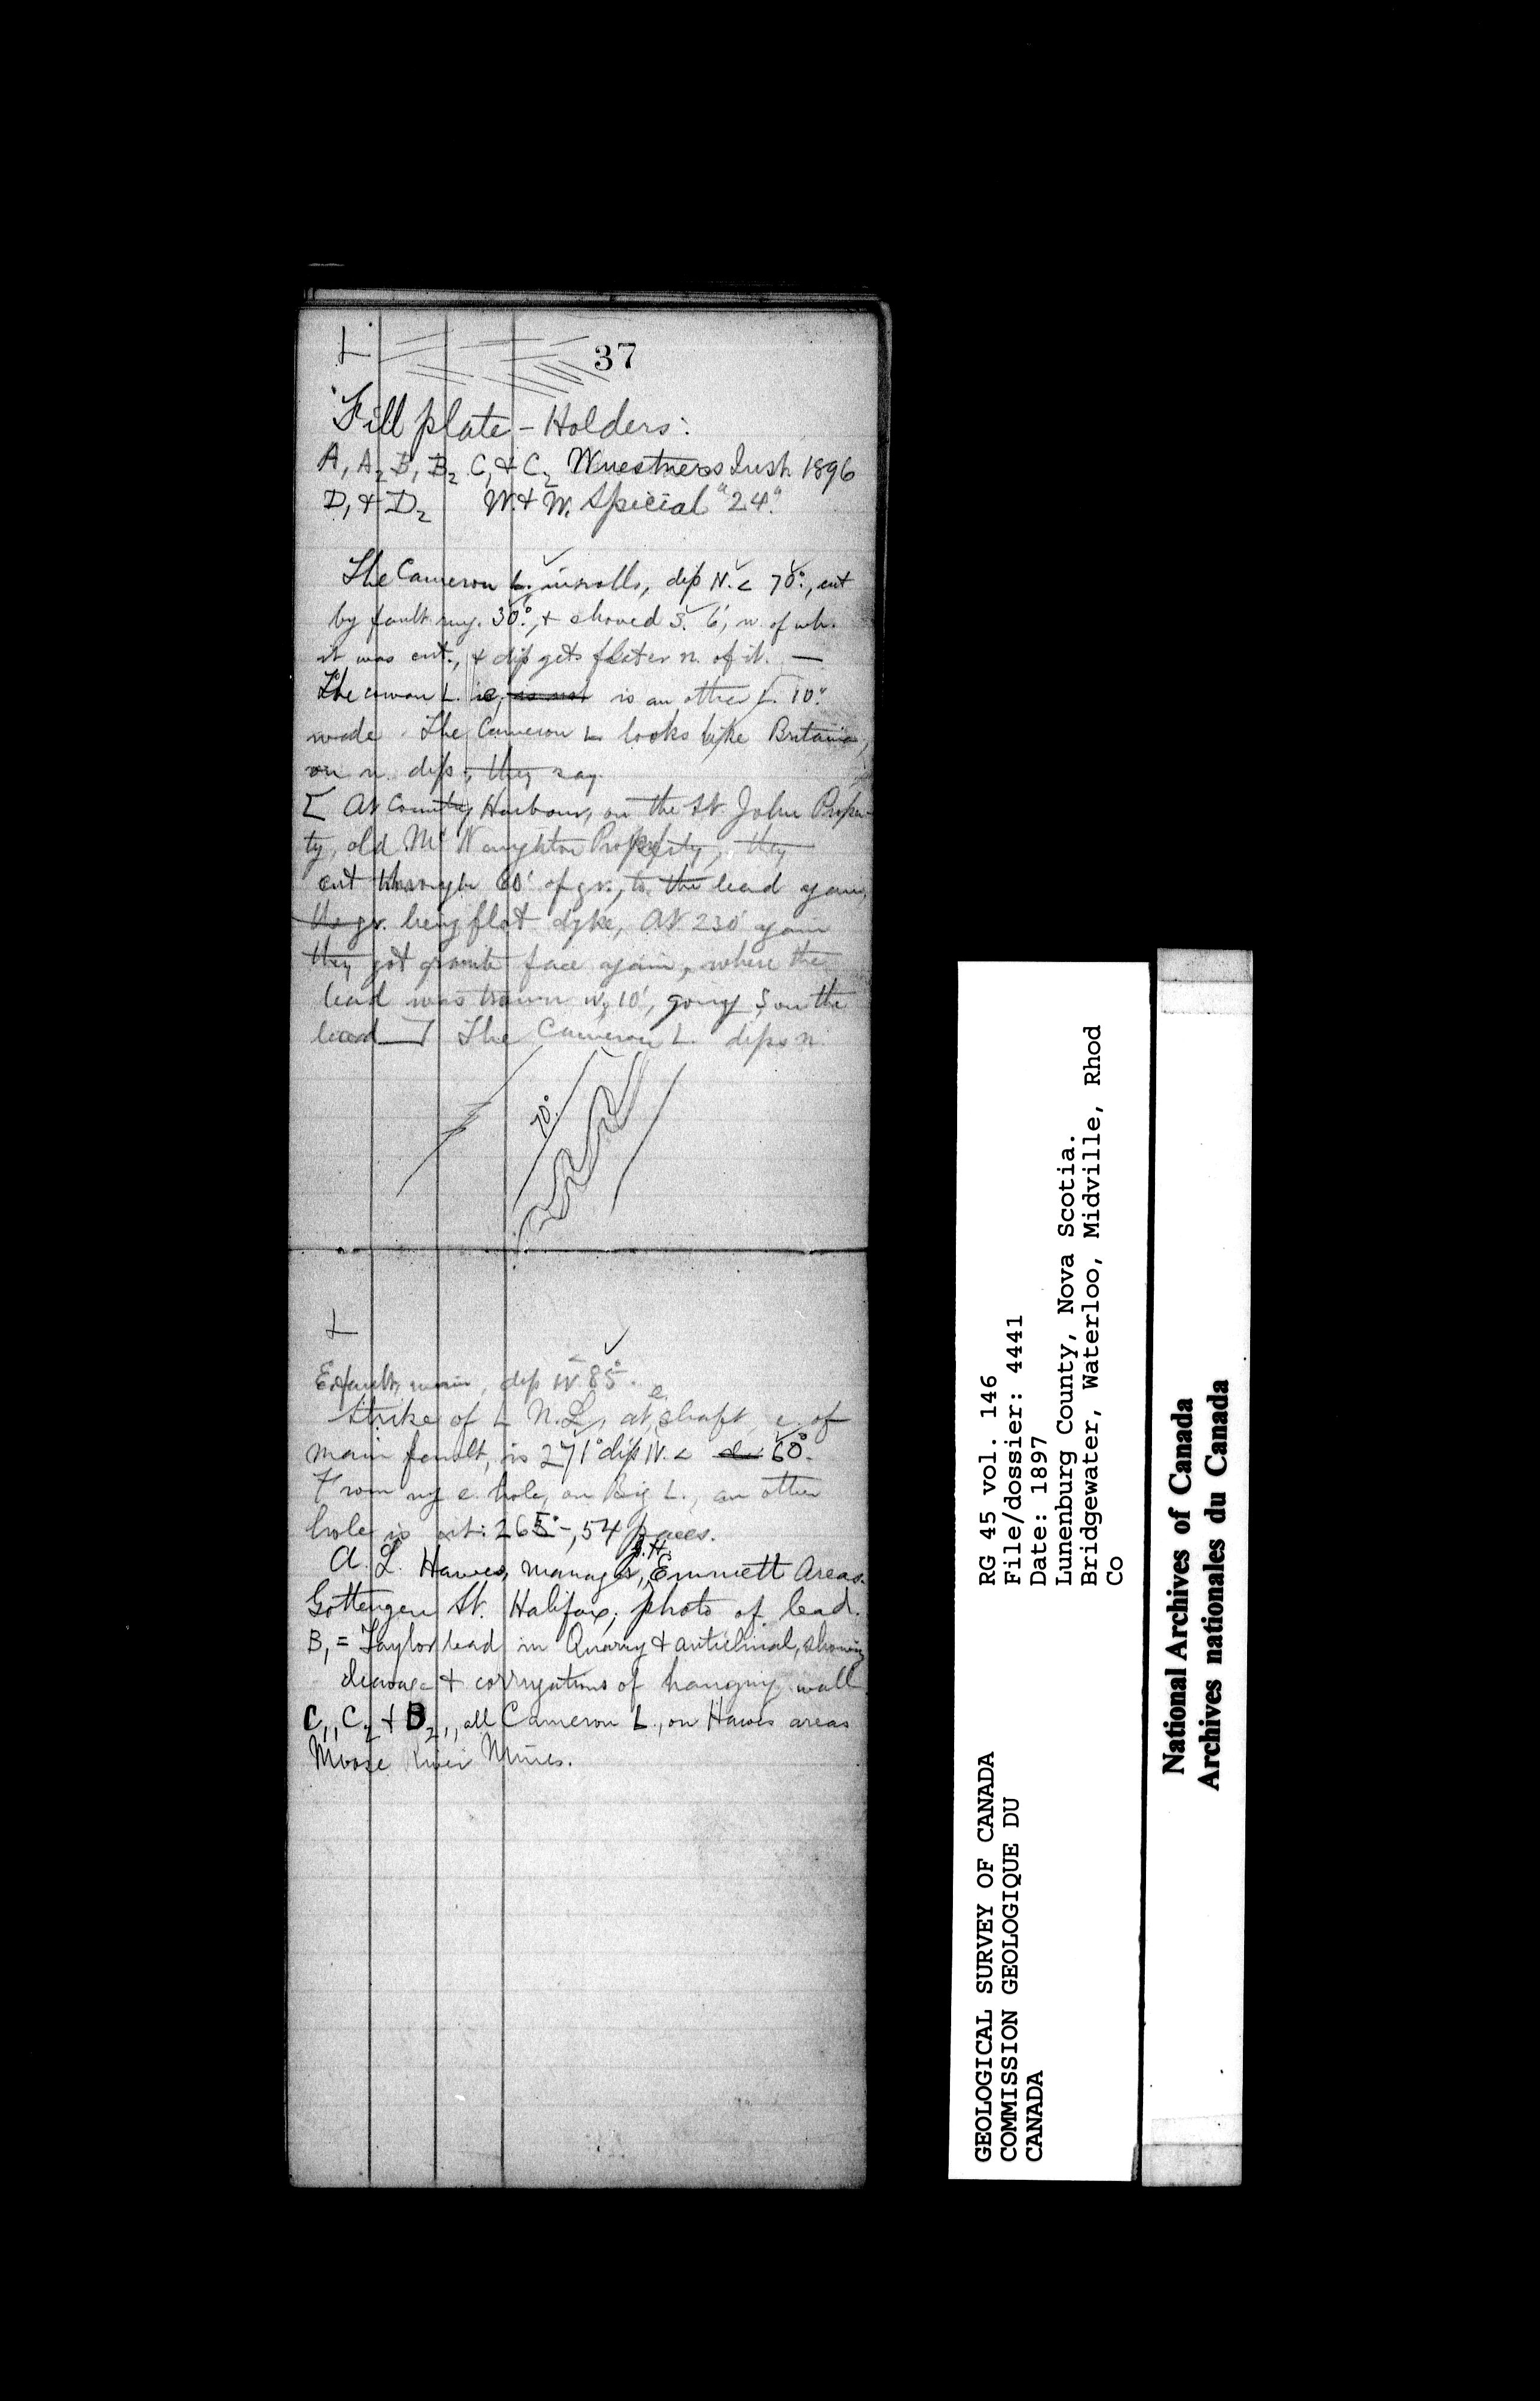 L
37
Fill plate - Holders:
A, A2 B, B2 C, & C2 Wuestners Inst. 1896
D, & D2 W. & W. Special "24."
The Cameron L., in rolls, dip N. < 70°., cut
by fault rung. 30°., & shoved S. 6', n. of wh.
it was cut., & dip gets flater n. of it. —
The cowan L. is an other L. 10"
wide. The Cameron L looks like Britania,
on n. dip, they say.
[ At County Harbour, on the St. John Proper-
ty, old Mc Naughton Property, they
cut through 60' of gr., to the lead again,
the gr. being flat dyke, At 230' again
they got granite face again, where the
lead was thrown W, 10', going S on the
lead ] The Cameron L. dips n.
70°.
L
E. of fault, main, dip N 85°.
Strike of L N.L., at e. shaft, e. of
main fault, is 271° dip N. < 60°.
From my e. hole, on Big L., an other
hole is at: 265°-, 54 paces.
A. L. Hawes, manager, B.H. Emmett Areas.
Gottengen St. Halifax; photo of lead.
B, = Taylor lead in Quarry & anticlinal, showing
cleavage & corrugations of hanging wall
C,, C2 & B2,, all Cameron L., on Hawes areas
Moose River Mines.
RG 45 vol. 146
File/dossier: 4441
Date: 1897
Lunenburg County, Nova Scotia.
Bridgewater, Waterloo, Midville, Rhod
Co
GEOLOGICAL SURVEY OF CANADA
COMMISSION GEOLOGIQUE DU
CANADA
National Archives of Canada
Archives nationales du Canada